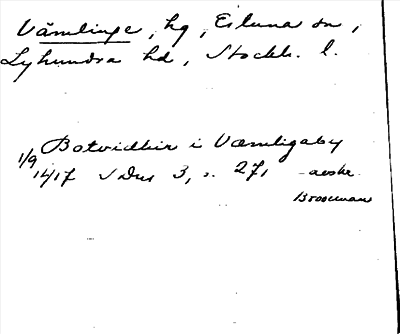 Vämlinge, hg, Estuna sn,
Lyhundra hd, Stockh. l.
Botvidhir i Væmligaby
1/9 1417 SDns 3, s. 271 avskr.
Brooeman